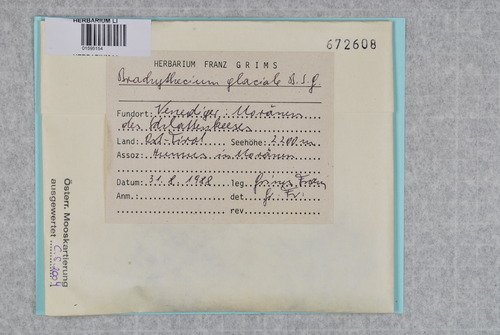 HERBARIUM LI
01595154
672608
HERBARIUM FRANZ GRIMS
Brachythecium glaciale B.S.G.
Fundort: Venediger: Moränen
des Schlattenkeeses
Land: Ost-Tirol Seehöhe: 2200m
Assoz: Humus in Moränen
Datum: 31.8.1988 leg. Grims Franz
Anm.: det. Gr. Fr.
rev.
Österr. Mooskartierung
ausgewertet